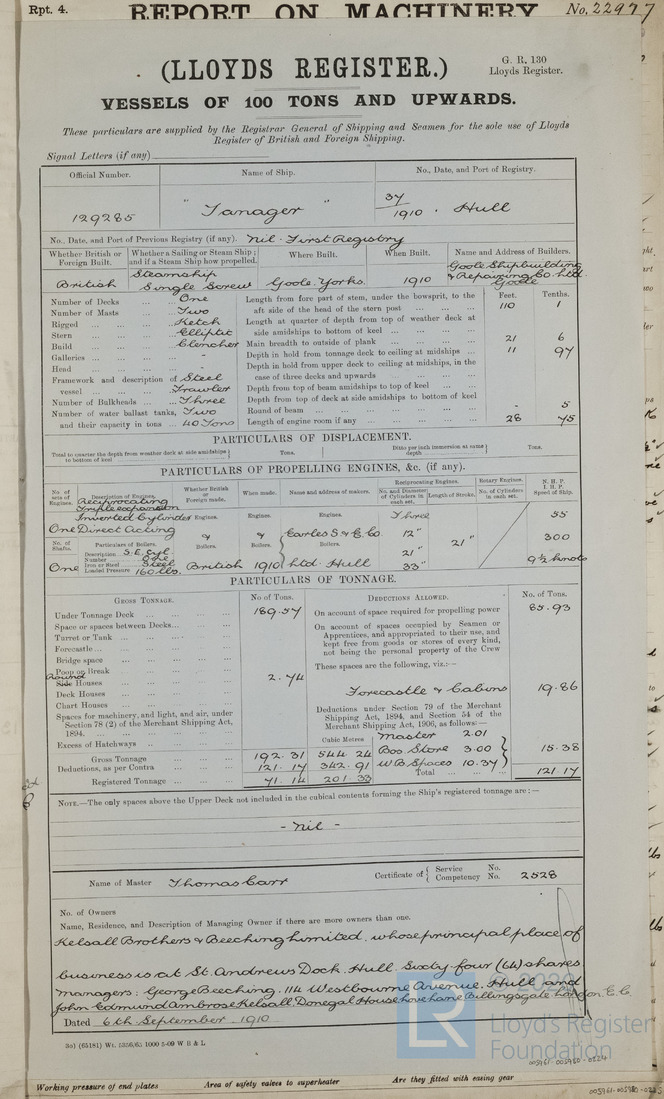 Rpt. 4. REPORT ON MACHINERY No. 22977
(LLOYDS REGISTER.)
G. R. 130
Lloyds Register.
VESSELS OF 100 TONS AND UPWARDS.
These particulars are supplied by the Registrar General of Shipping and Seamen for the sole use of Lloyds
Register of British and Foreign Shipping.
Signal Letters (if any)
Official Number. Name of Ship. No., Date, and Port of Registry.
129285 "Tanager" 37/1910. Hull
No., Date, and Port of Previous Registry (if any). Nil. First Registry
Whether British or Foreign Built. Whether a Sailing or Steam Ship; and if a Steam Ship how propelled. Where Built. When Built. Name and Address of Builders.
British Steamship Single Screw Goole. Yorks. 1910 Goole Shipbuilding & Repairing Co. Ltd Goole
Number of Decks One
Number of Masts Two
Rigged Ketch
Stern Elliptic
Build Clencher
Galleries -
Head -
Framework and description of vessel Steel Trawler
Number of Bulkheads Three
Number of water ballast tanks, Two
and their capacity in tons 40 Tons
Feet. Tenths.
Length from fore part of stem, under the bowsprit, to the
aft side of the head of the stern post 110 1
Length at quarter of depth from top of weather deck at
side amidships to bottom of keel
Main breadth to outside of plank 21 6
Depth in hold from tonnage deck to ceiling at midships 11 97
Depth in hold from upper deck to ceiling at midships, in the
case of three decks and upwards
Depth from top of beam amidships to top of keel
Depth from top of deck at side amidships to bottom of keel
Round of beam - 5
Length of engine room if any 28 75
PARTICULARS OF DISPLACEMENT.
Total to quarter the depth from weather deck at side amidships to bottom of keel Tons. Ditto per inch immersion at same depth Tons.
PARTICULARS OF PROPELLING ENGINES, &c. (if any).
No. of sets of Engines. Description of Engines. Whether British or Foreign made. When made. Name and address of makers. Reciprocating Engines. No. and Diameter of Cylinders in each set. Length of Stroke. Rotary Engines. No. of Cylinders in each set. N.H.P. I.H.P. Speed of Ship.
One Reciprocating Triple expansion Inverted Cylinder Direct Acting
Engines. Engines. Engines.
No. of Shafts. Particulars of Boilers. Boilers. Boilers. Boilers.
One Description S. E. Cyl.
Number One
Iron or Steel Steel
Loaded Pressure 160 lbs.
British & 1910 & Earles S & E. Co. Ltd. Hull
Three 12" 21" 33" 21"
55
300
9½ knots
PARTICULARS OF TONNAGE.
GROSS TONNAGE. No of Tons.
Under Tonnage Deck 189.57
Space or spaces between Decks
Turret or Tank
Forecastle
Bridge space
Poop or Break
Round Side Houses 2.74
Deck Houses
Chart Houses
Spaces for machinery, and light, and air, under
Section 78 (2) of the Merchant Shipping Act,
1894.
Excess of Hatchways
Cubic Metres
Gross Tonnage 192.31 544.24
Deductions, as per Contra 121.17 342.91
Registered Tonnage 71.14 201.33
DEDUCTIONS ALLOWED. No. of Tons.
On account of space required for propelling power 85.93
On account of spaces occupied by Seamen or
Apprentices, and appropriated to their use, and
kept free from goods or stores of every kind,
not being the personal property of the Crew
These spaces are the following, viz.:—
Forecastle & Cabins 19.86
Deductions under Section 79 of the Merchant
Shipping Act, 1894, and Section 54 of the
Merchant Shipping Act, 1906, as follows:—
Master 2.01
Bos. Store 3.00
W B Spaces 10.37 15.38
Total 121.17
NOTE.—The only spaces above the Upper Deck not included in the cubical contents forming the Ship's registered tonnage are:—
- Nil -
Name of Master Thomas Carr Certificate of Service No. Competency No. 2528
No. of Owners
Name, Residence, and Description of Managing Owner if there are more owners than one.
Kelsall Brothers & Beeching Limited. whose principal place of
business is at St. Andrews Dock. Hull. Sixty four (64) shares
Managers: George Beeching. 114 Westbourne Avenue. Hull and
John Edmund Ambrose Kelsall. Donegal House Love Lane Billingsgate London. E.C.
Dated 6th September 1910
© 2020
LR
Lloyd's Register
Foundation
3o) (65181) Wt. 5356/65 1000 5-09 W B & L
005961-005980-0224
Working pressure of end plates Area of safety valves to superheater Are they fitted with easing gear